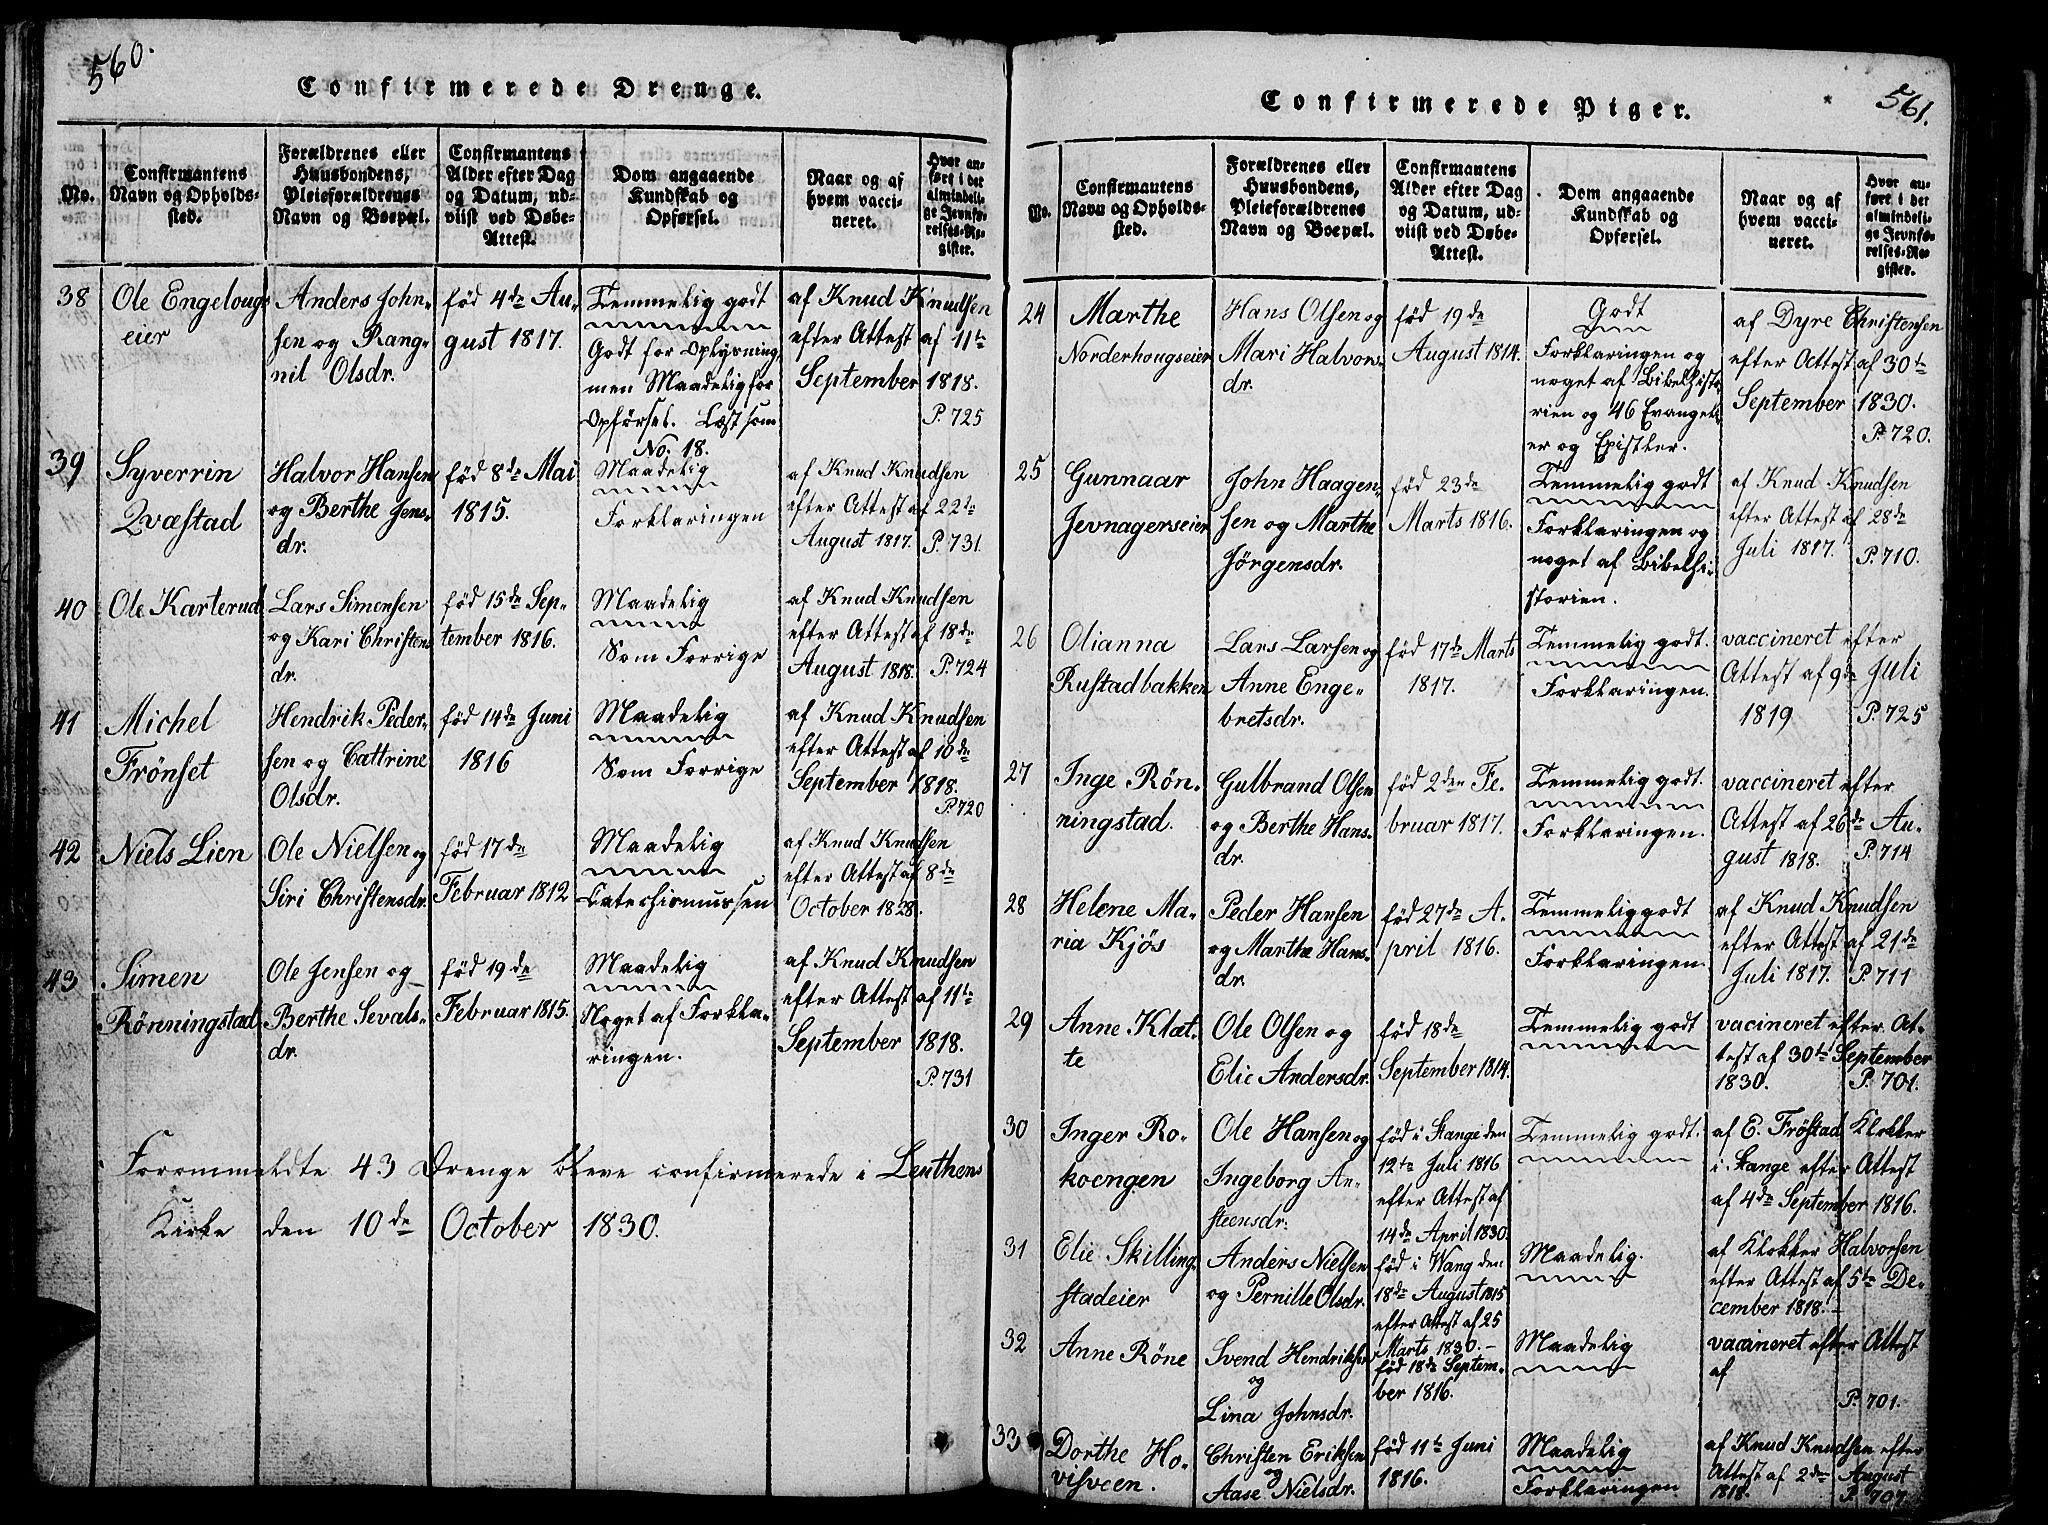 560.
Confirmerede Drenge.
No.
Confirmantens
Navn og Opholds-
sted.
Forældrenes eller
Huusbondens,
Pleieforældrenes
Navn og Boepæl.
Confirmantens
Alder efter Dag
og Datum, ud-
viist ved Døbe-
Attest.
Dom angaaende
Kundskab og
Opførsel.
Naar og af
hvem vacci-
neret.
Hvor an-
ført i det
almindeli-
ge Jevnfø-
relses-Re-
gister.
38
Ole Engelougs
eier
Anders John-
sen og Rang-
nil Olsdr.
fød 4de Au-
gust 1817.
Temmelig godt
Godt for Oplysning
men Maadelig for
Opførsel. Læst som
No. 18.
af Knud Knudsen
efter Attest af 11te
September 1818.
P. 725
39
Syverrin
Qvæstad
Halvor Hansen
og Berthe Jens-
dr.
fød 8de Mai
1815.
Maadelig
Forklaringen
af Knud Knudsen
efter Attest af 22de
August 1817. P. 731.
40
Ole Karterud
Lars Simensen
og Kari Christens
dr.
fød 15de Sep-
tember 1816.
Maadelig
Som Forrige
af Knud Knudsen
efter Attest af 18de
August 1818. P. 724
41
Michel
Frönset
Hendrik Peder-
sen og Cattrine
Olsdr.
fød 14de Juni
1816
Maadelig
Som Forrige
af Knud Knudsen
efter Attest af 10de
September 1818.
P. 720
42
Niels Lien
Ole Nielsen og
Siri Christensdr.
fød 17de
Februar 1812
Maadelig
Catechismussen
af Knud Knudsen
efter Attest af 8de
October 1828.
43
Simen
Rönningstad
Ole Jensen og
Berthe Sevals-
dr.
fød 19de
Februar 1815.
Maadelig
Noget af Forkla-
ringen.
af Knud Knudsen
efter Attest af 11te
September 1818.
P. 731
Forommeldte 43 Drenge bleve confirmerede i Leuthens
Kirke den 10de October 1830.
561.
Confirmerede Piger.
No.
Confirmantens
Navn og Opholds-
sted.
Forældrenes eller
Huusbondens,
Pleieforældrenes
Navn og Boepæl.
Confirmantens
Alder efter Dag
og Datum, ud-
viist ved Døbe-
Attest.
Dom angaaende
Kundskab og
Opførsel.
Naar og af
hvem vacci-
neret.
Hvor an-
ført i det
almindeli-
ge Jevnfø-
relses-Re-
gister.
24
Marthe
Norderhougseier
Hans Olsen og
Mari Halvors
dr.
fød 19de
August 1814.
Godt
Forklaringen og
noget af Bibelhisto-
rien og 46 Evangeli-
er og Epistler.
af Dyre Christensen
efter Attest af 30te
September 1830.
P. 720.
25
Gunnaar
Jevnagerseier
John Haagen-
sen og Marthe
Jörgensdr.
fød 23de
Marts 1816.
Temmelig godt
Forklaringen og
noget af Bibelhi-
storien.
af Knud Knudsen
efter Attest af 28de
Juli 1817. P. 710.
26
Olianna
Rustadbakken
Lars Larsen og
Anne Enge-
bretsdr.
fød 17de Marts
1817.
Temmelig godt.
Forklaringen.
vaccineret efter
Attest af 9de Juli
1819 P. 725
27
Inge Rön-
ningstad.
Gulbrand Olsen
og Berthe Hans-
dr.
fød 2den Fe-
bruar 1817.
Temmelig godt.
Forklaringen.
vaccineret efter
Attest af 26de Au-
gust 1818. P. 714
28
Helene Ma-
ria Kjös
Peder Hansen
og Marthe Hans-
dr.
fød 27de A-
pril 1816.
Temmelig godt
Forklaringen.
af Knud Knudsen
efter Attest af 21de
Juli 1817. P. 711
29
Anne Klæt-
te
Ole Olsen og
Elie Andersdr.
fød 18de
September 1814.
Temmelig godt
vacineret efter At-
test af 30te September
1830. P. 701.
30
Inger Ro-
koengen
Ole Hansen og
Ingeborg An-
steensdr.
fød i Stange den
12te Juli 1816
efter Attest af
14de April 1830.
Temmelig godt.
af E. Fröstad Klokker
i Stange efter Attest
af 4de September 1816.
31
Elie Skilling-
stadeier
Anders Nielsen
og Pernille Olsdr.
fød i Wang den
18de August 1815
efter Attest af 25
Marts 1830.–
Maadelig.
af Klokker Halvorsen
efter Attest af 5te De-
cember 1818.–
32
Anne Röne
Svend Hendriksen
og
Lina Johnsdr.
fød 18de Septem-
ber 1816.
Maadelig
vaccineret efter Attest
af
P. 701.
33
Dorthe Ho-
visveen.
Christen Eriksen
og
Aase Nielsdr.
fød 11te Juni
1816.
Maadelig
Forklaringen
af Knud Knudsen efter
Attest af 2de August
1818. P. 707